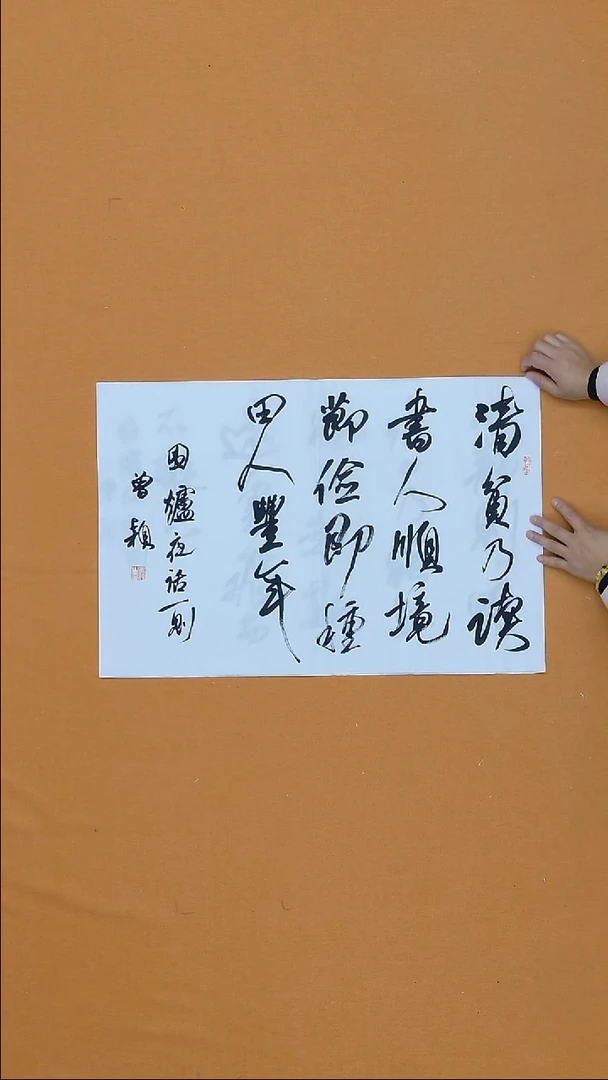 清貧乃讀
書人順境
節儉即種
田人豐年
圍爐夜話一則
曾穎